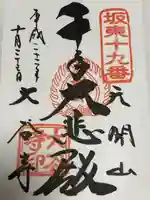 坂東十九番
天開山
千手大悲殿
大谷寺
平成二十二年
十月二十三日